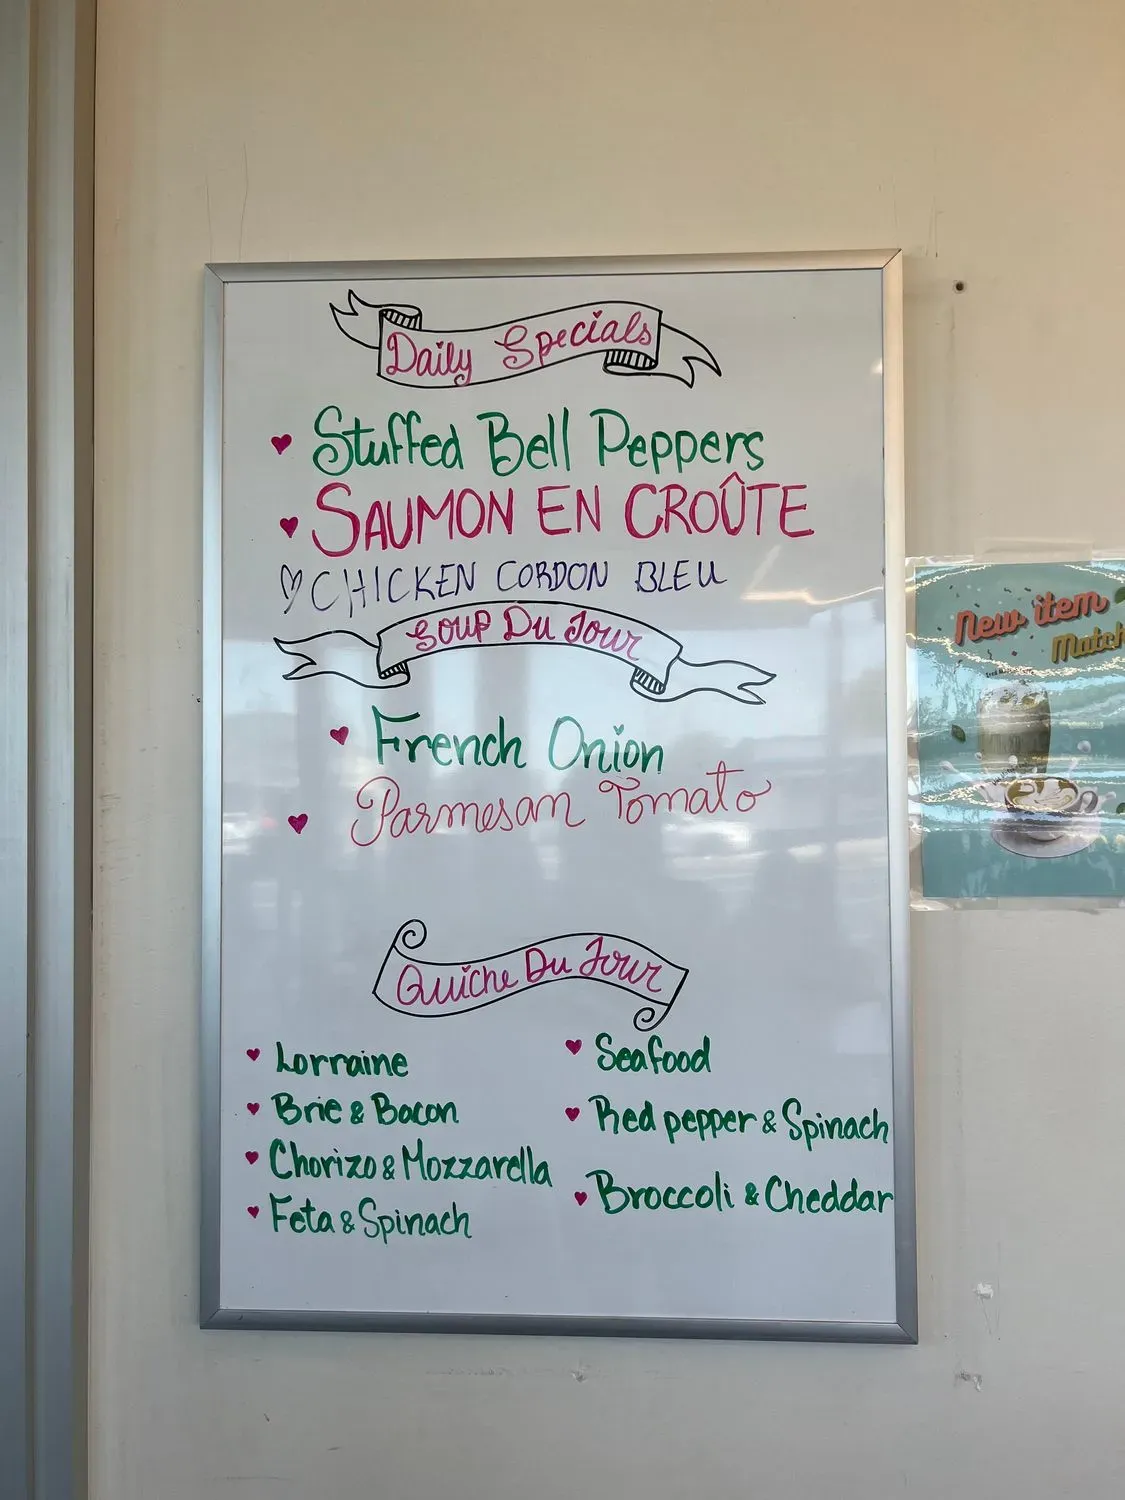 Daily Specials
Stuffed Bell Peppers
SAUMON EN CROÛTE
CHICKEN CORDON BLEU
Soup Du Jour
French Onion
Parmesan Tomato
Quiche Du Jour
Lorraine
Brie & Bacon
Chorizo & Mozzarella
Feta & Spinach
Seafood
Red pepper & Spinach
Broccoli & Cheddar
New item
Matcha